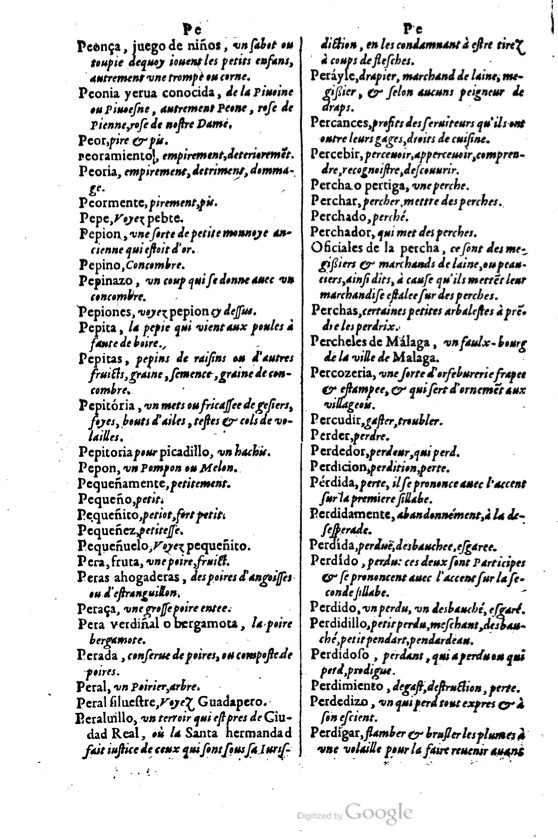 Pe
Peonça, juego de niños, vn sabot ou
toupie dequoy iouent les petits enfans,
autrement vne trompe ou corne.
Peonia yerua conocida, de la Piuoine
ou Piuoesne, autrement Peone, rose de
Pienne, rose de nostre Dame.
Peor, pire & pis.
peoramiento, empirement, deterioremẽt.
Peoria, empirement, detriment, domma-
ge.
Peormente, pirement, pis.
Pepe, Voyez pebte.
Pepion, vne sorte de petite monnoye an-
cienne qui estoit d'or.
Pepino, Concombre.
Pepinazo, vn coup qui se donne auec vn
concombre.
Pepiones, voyez pepion cy dessus.
Pepita, la pepie qui vient aux poules à
faute de boire.
Pepitas, pepins de raisins ou d'autres
fruicts, graine, semence, graine de con-
combre.
Pepitória, vn mets ou fricassee de gesiers,
foyes, bouts d'ailes, testes & cols de vo-
lailles.
Pepitoria pour picadillo, vn hachis.
Pepon, vn Pompon ou Melon.
Pequeñamente, petitement.
Pequeño, petit.
Pequeñito, petiot, fort petit.
Pequeñez, petitesse.
Pequeñuelo, Voyez pequeñito.
Pera, fruta, vne poire, fruict.
Peras ahogaderas, des poires d'angoisses
ou d'estranguillon.
Peraça, vne grosse poire entee.
Pera verdiñal o bergamota, la poire
bergamote.
Perada, conserue de poires, ou composte de
poires.
Peral, vn Poirier, arbre.
Peral siluestre, Voyez Guadapero.
Peraluillo, vn terroir qui est pres de Ciu-
dad Real, où la Santa hermandad
fait iustice de ceux qui sont sous sa Iuris-
Pe
diction, en les condamnant à estre tirez
à coups de flesches.
Peráyle, drapier, marchand de laine, me-
gissier, & selon aucuns peigneur de
draps.
Percances, profits des seruiteurs qu'ils ont
outre leurs gages, droits de cuisine.
Percebir, perceuoir, apperceuoir, compren-
dre, recognoistre, descouurir.
Percha o pertiga, vne perche.
Perchar, percher, mettre des perches.
Perchado, perché.
Perchador, qui met des perches.
Oficiales de la percha, ce sont des me-
gissiers & marchands de laine, ou peau-
ciers, ainsi dits, à cause qu'ils mettẽt leur
marchandise estalee sur des perches.
Perchas, certaines petites arbalestes à prẽ-
dre les perdrix.
Percheles de Málaga, vn faulx-bourg
de la ville de Malaga.
Percozeria, vne sorte d'orfeburerie frapee
& estampee, & qui sert d'ornemẽt aux
villageois.
Percudir, gaster, troubler.
Perder, perdre.
Perdedor, perdeur, qui perd.
Perdicion, perdition, perte.
Pérdida, perte, il se prononce auec l'accent
sur la premiere sillabe.
Perdidamente, abandonnément, à la de-
sesperade.
Perdída, perduë, desbauchee, esgaree.
Perdído, perdu: ces deux sont Participes
& se prononcent auec l'accent sur la se-
conde sillabe.
Perdido, vn perdu, vn desbauché, esgaré.
Perdidillo, petit perdu, meschant, desbau-
ché, petit pendart, pendardeau.
Perdidoso, perdant, qui a perdu ou qui
perd, prodigue.
Perdimiento, degast, destruction, perte.
Perdedizo, vn qui perd tout expres & à
son escient.
Perdigar, flamber & brusler les plumes à
vne volaille pour la faire reuenir auant
Digitized by Google